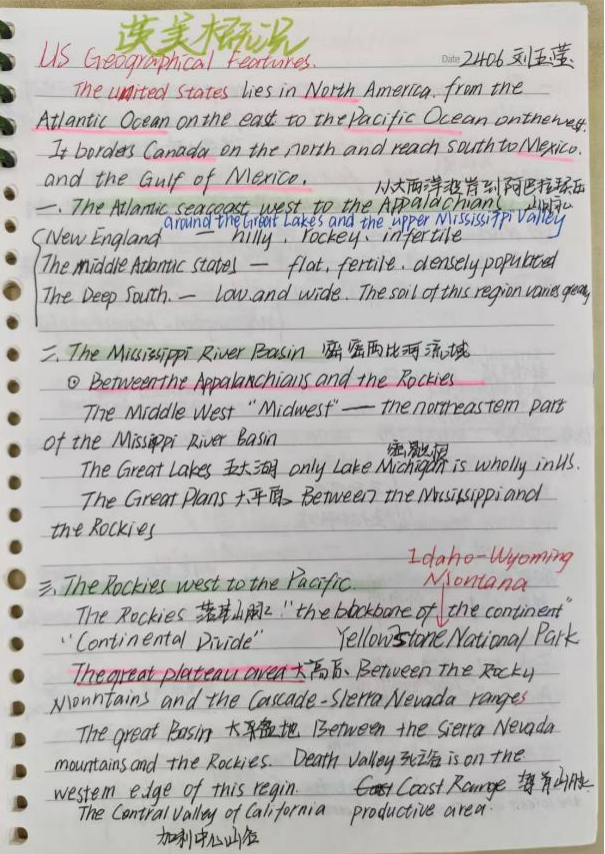 英美概况
US Geographical Features.
Date 2406 刘玉莹
The united states lies in North America. from the
Atlantic Ocean on the east to the Pacific Ocean on the west.
It borders Canada on the north and reach south to Mexico.
and the Gulf of Mexico.
从大西洋沿岸到阿巴拉契亚山脉
一. The Atlantic seacoast west to the Appalachians
around the Great Lakes and the upper Mississippi Valley
New England — hilly, rockey, infertile
The middle Atlantic states — flat, fertile, densely populated
The Deep South. — Low and wide. The soil of this region varies greatly
二. The Mississippi River Basin 密西西比河流域
⊙ Between the Appalanchians and the Rockies
The Middle West "Midwest" — the northeastern part
of the Missippi River Basin
密歇根
The Great Lakes 五大湖 only Lake Michigan is wholly in US.
The Great Plans 大平原 Between the Mississippi and
the Rockies
Idaho-Wyoming
Montana
三. The Rockies west to the Pacific.
The Rockies 落基山脉 "the blackbone of the continent"
"Continental Divide" Yellowstone National Park
The great plateau area 大高原 Between the Rocky
Mountains and the Cascade-Sierra Nevada ranges
The great Basin 大平盆地 Between the Sierra Nevada
mountains and the Rockies. Death Valley 死谷 is on the
western edge of this regin. Coast Range 海岸山脉
The Central Valley of California productive area.
加利中心山谷